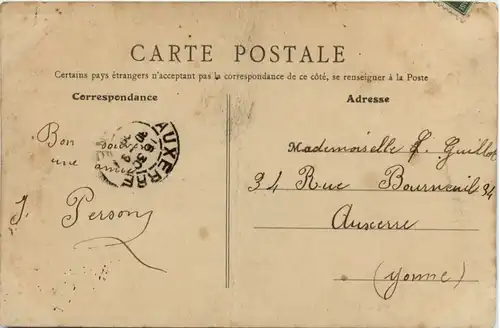 CARTE POSTALE
Certains pays étrangers n'acceptant pas la correspondance de ce côté, se renseigner à la Poste
Correspondance
Adresse
AUXERRE
16 30
Bon
une amie
J. Person
Mademoiselle L. Guillot
34 Rue Bourneuil 34
Auxerre
(Yonne)